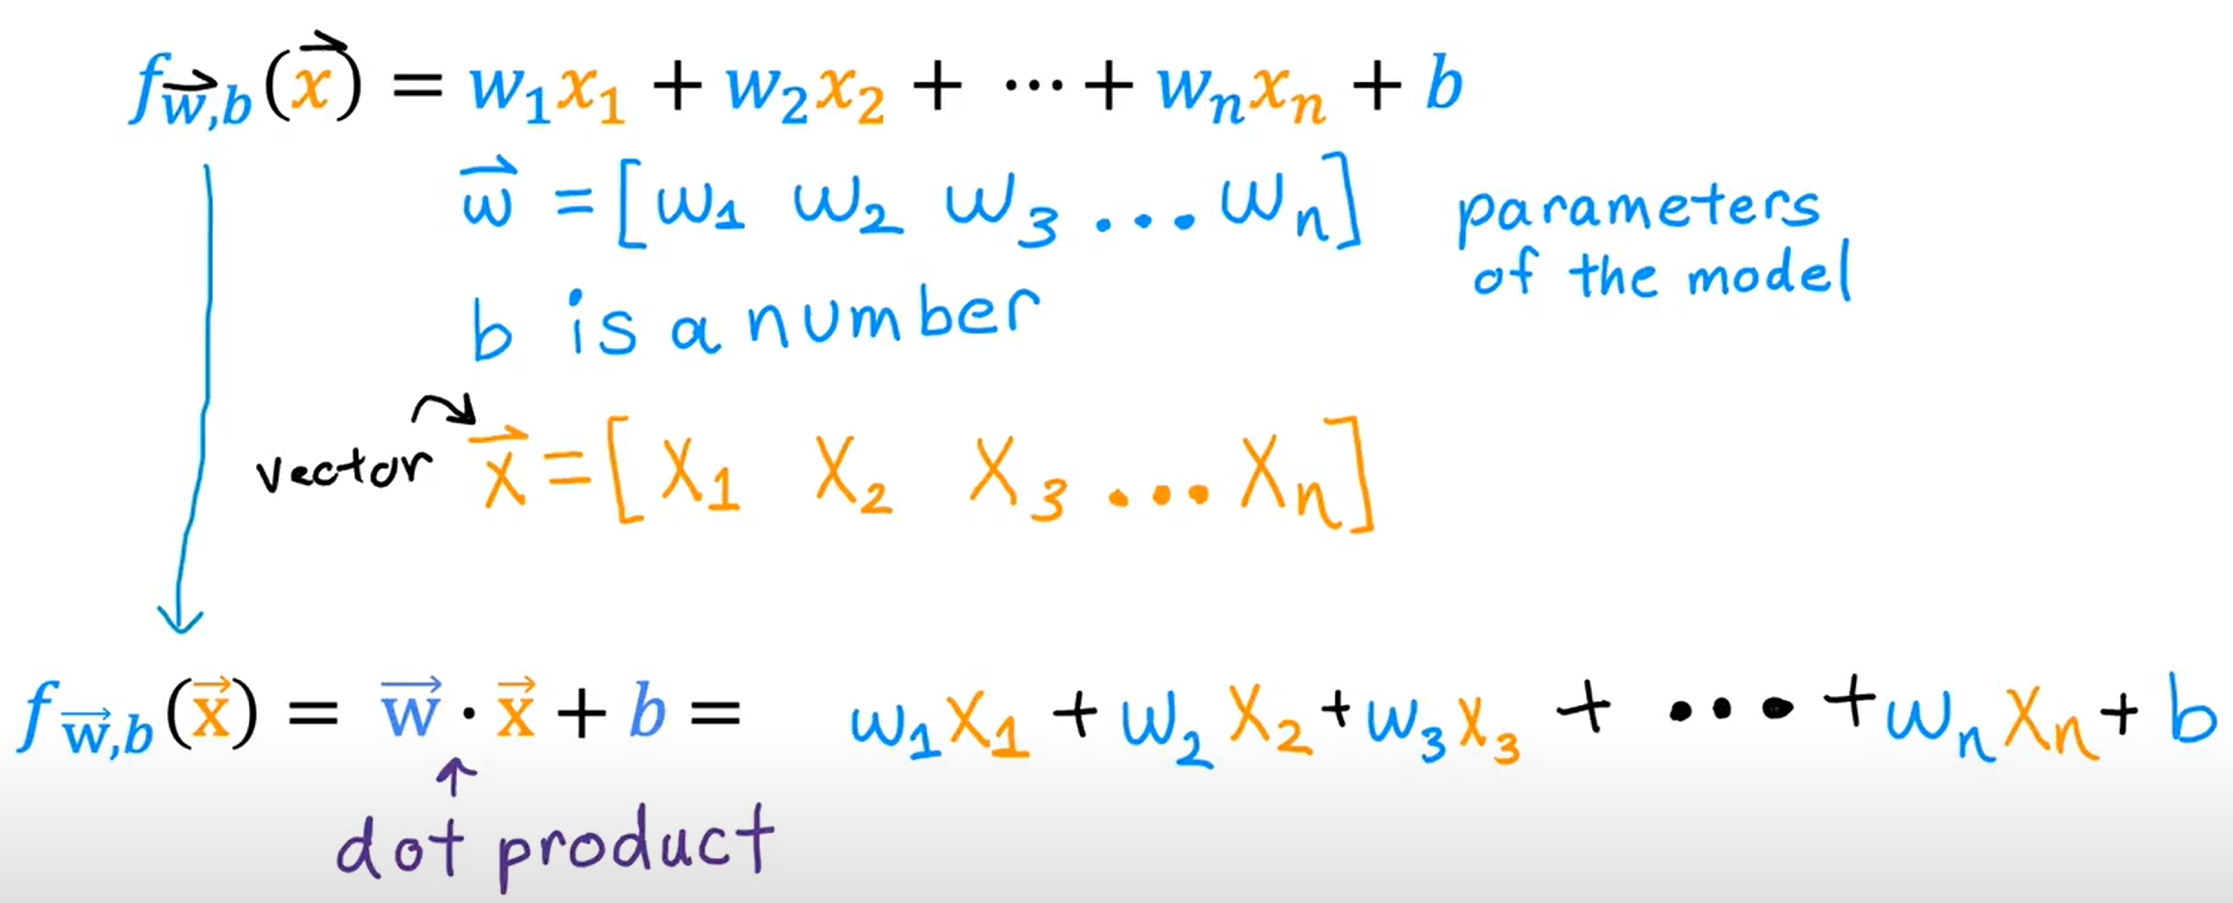 f_{w⃗,b}(x⃗) = w₁x₁ + w₂x₂ + ⋯ + wₙxₙ + b
w⃗ = [w₁ w₂ w₃ ... wₙ]
parameters
of the model
b is a number
vector x⃗ = [x₁ x₂ x₃ ... xₙ]
f_{w⃗,b}(x⃗) = w⃗ · x⃗ + b = w₁x₁ + w₂x₂ + w₃x₃ + ... + wₙxₙ + b
dot product